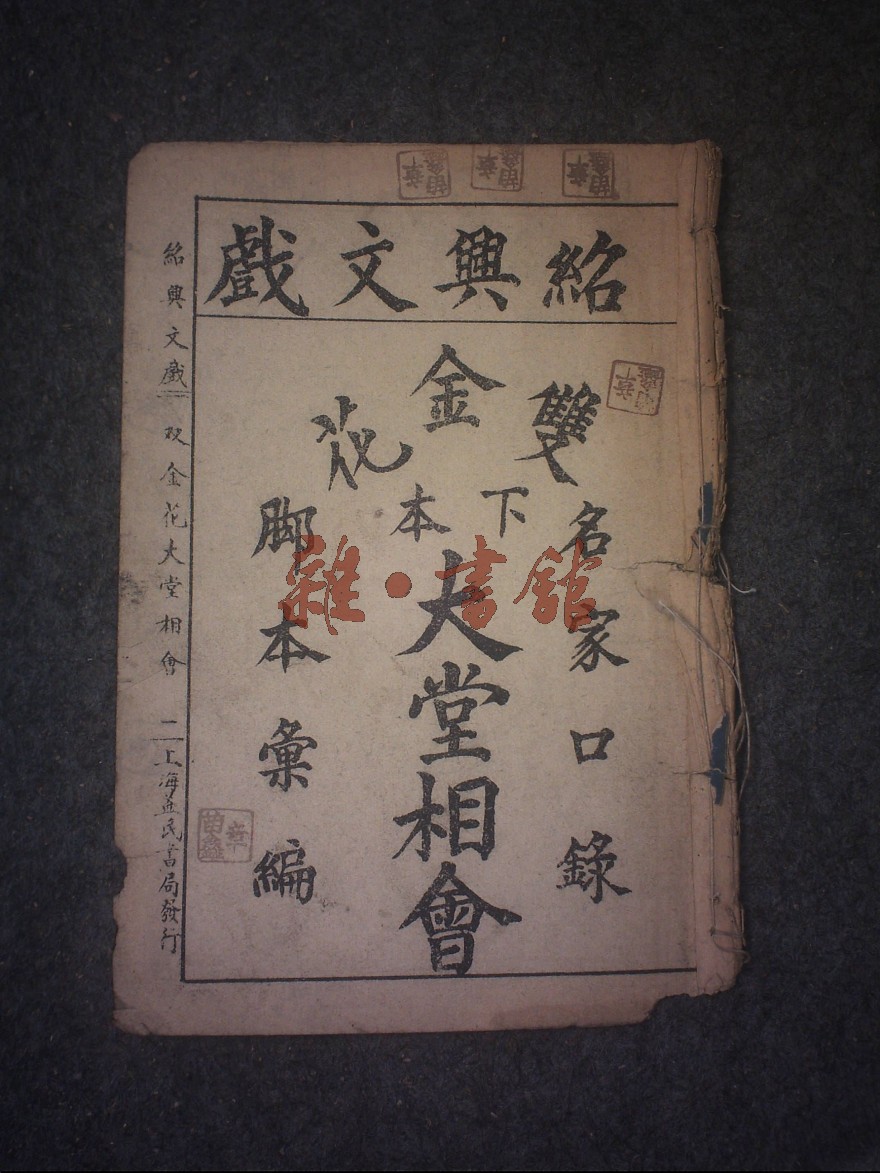 紹興文戲
雙金花
下本
大堂相會
名家口錄
脚本彙編
紹興文戲 双金花大堂相會 二 上海益民書局發行
雜·書舘